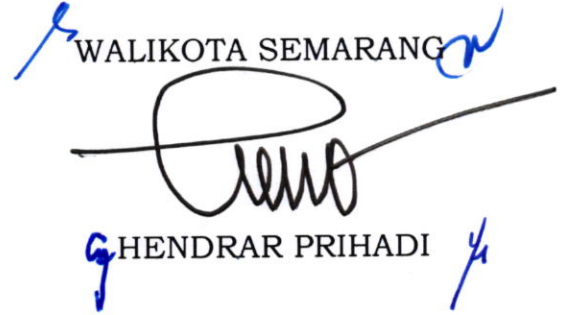 WALIKOTA SEMARANG
HENDRAR PRIHADI